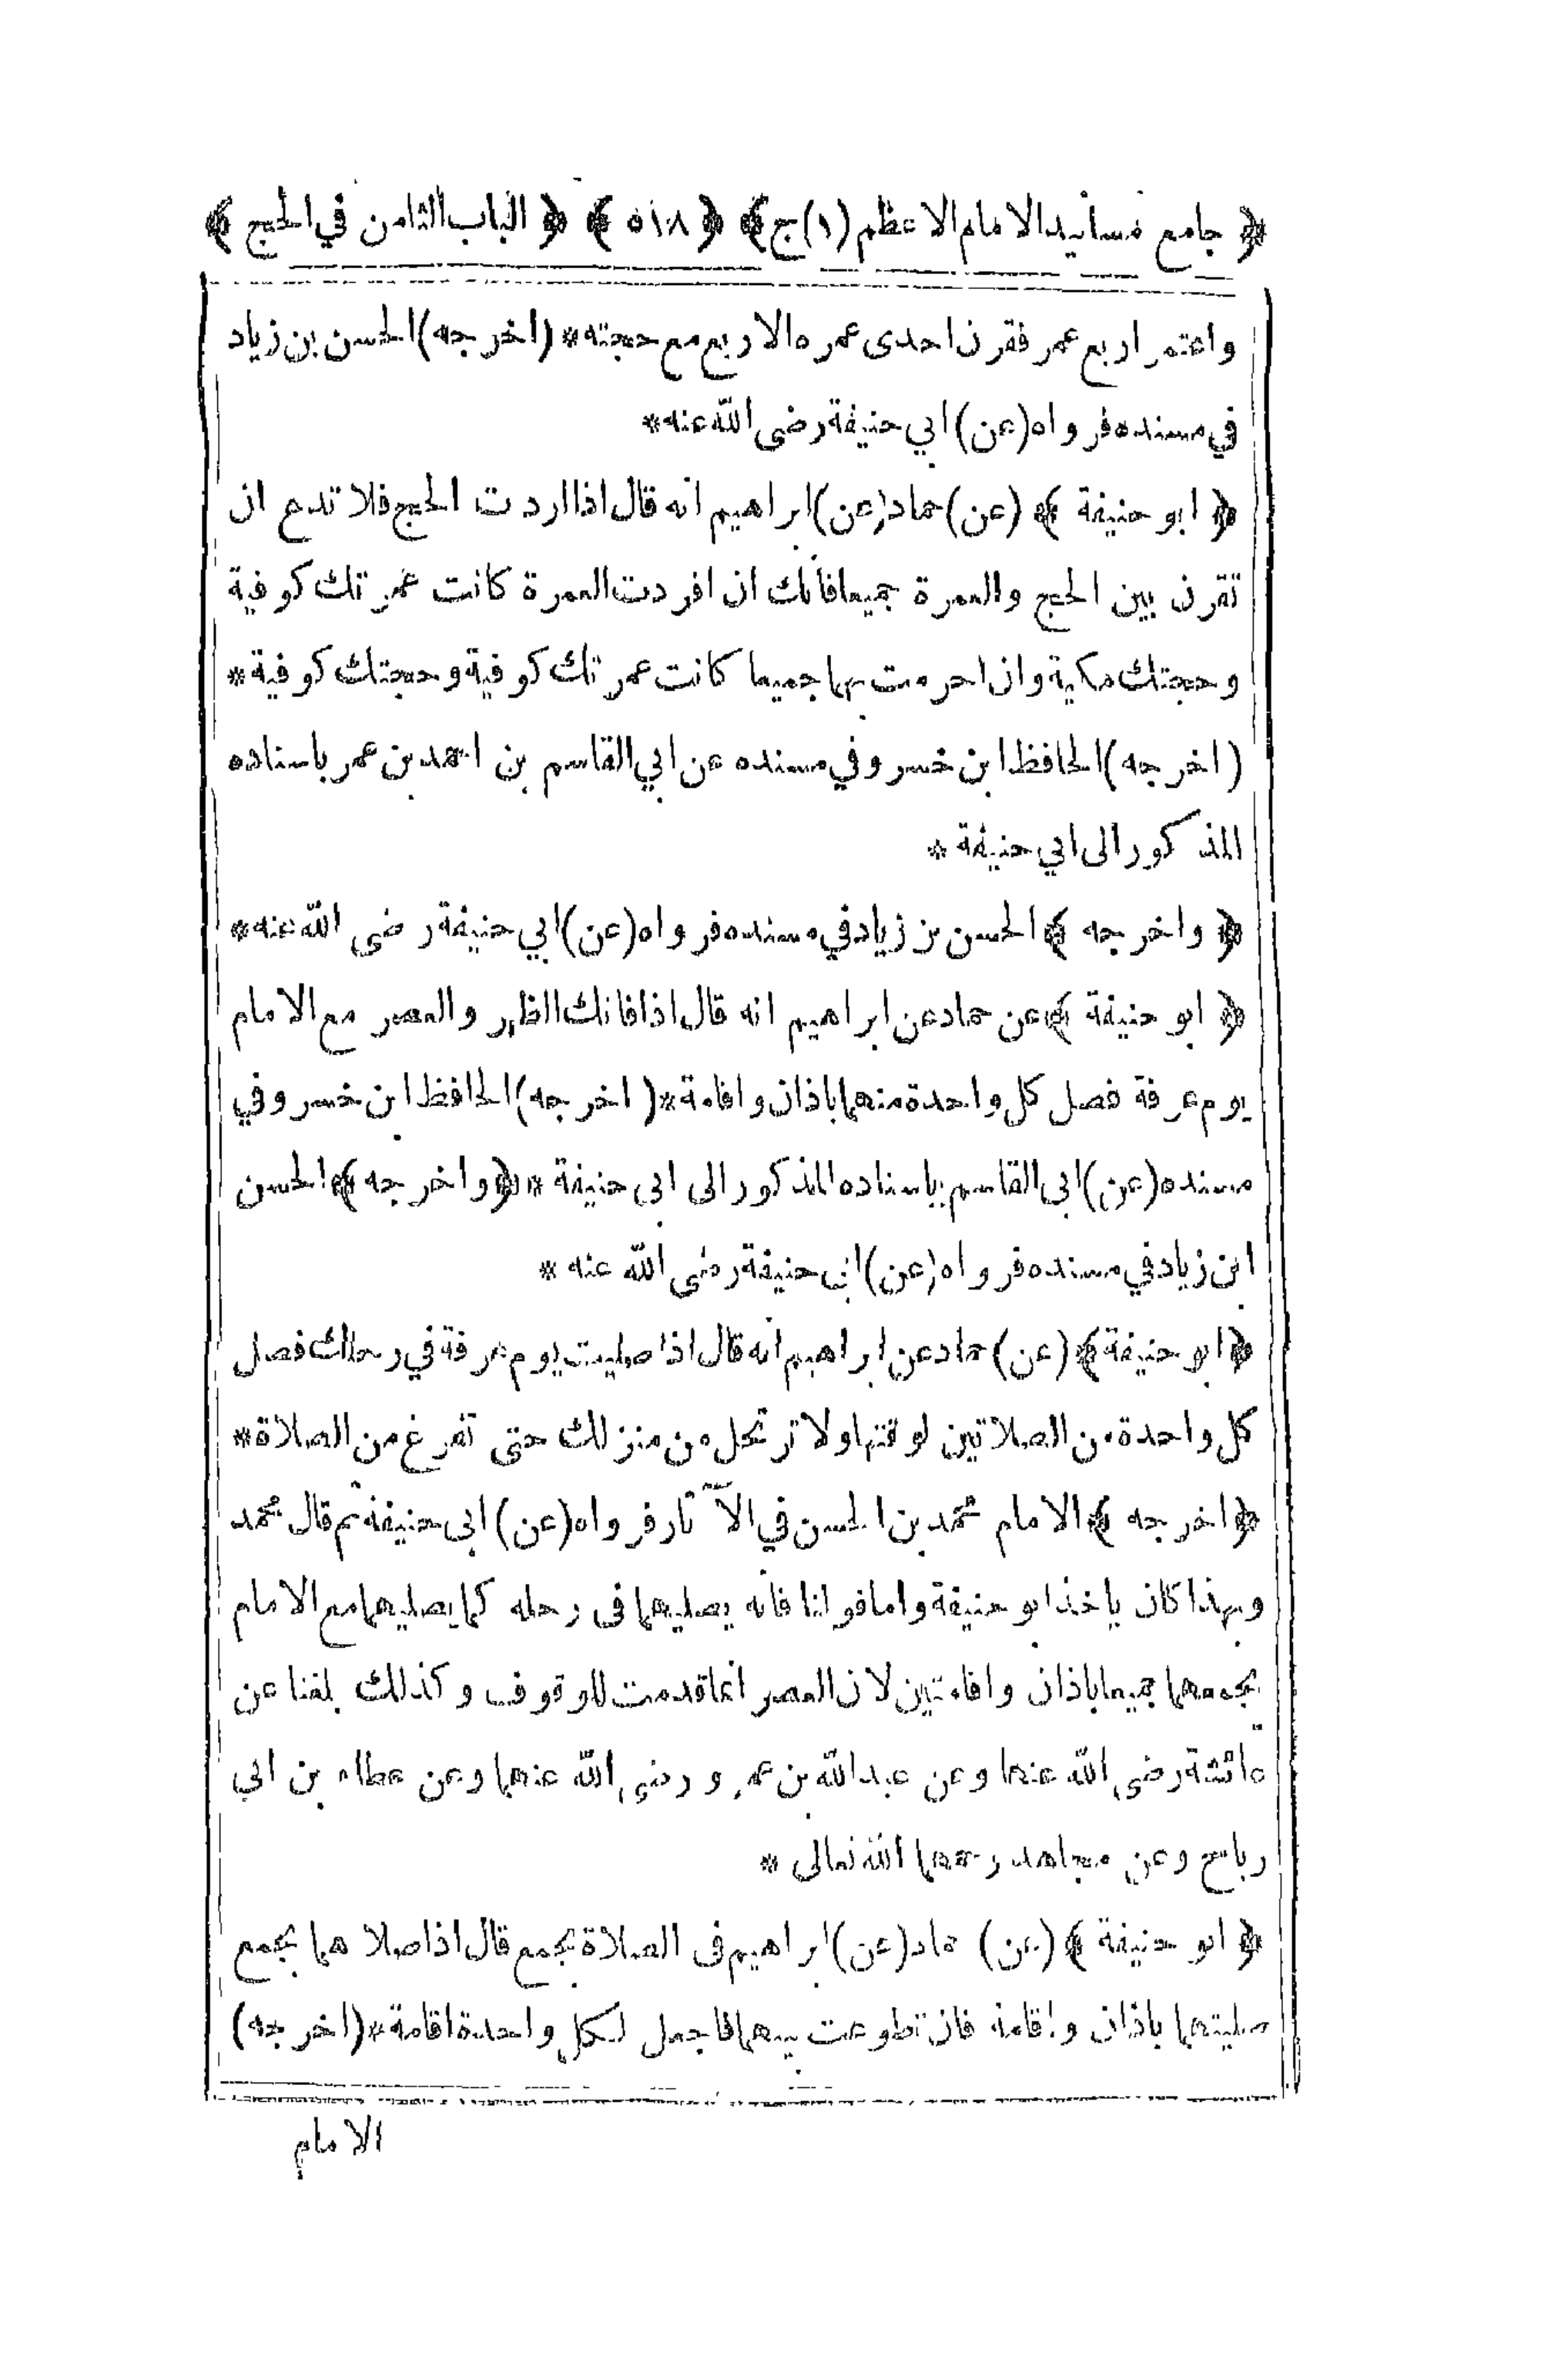 ﴿ جامع مسانيد الامام الاعظم (١) ج﴾ ﴿ ٥١٨ ﴾ ﴿ الباب الثامن في الحج ﴾
واعتمر اربع عمر فقرن احدى عمره الاربع مع حجته * (اخرجه) الحسن بن زياد
في مسنده فرواه (عن) ابي حنيفة رضى الله عنه *
﴿ ابو حنيفة ﴾ (عن) حماد (عن) ابراهيم انه قال اذا اردت الحج فلا تدع ان
تقرن بين الحج والعمرة جميعا فانك ان افردت العمرة كانت عمرتك كوفية
وحجتك مكية وان احرمت بهما جميعا كانت عمرتك كوفية وحجتك كوفية *
(اخرجه) الحافظ ابن خسرو في مسنده عن ابي القاسم بن احمد بن عمر باسناده
المذكور الى ابي حنيفة *
﴿ واخرجه ﴾ الحسن بن زياد في مسنده فرواه (عن) ابي حنيفة رضى الله عنه *
﴿ ابو حنيفة ﴾ عن حماد عن ابراهيم انه قال اذا فاتك الظهر والعصر مع الامام
يوم عرفة فصل كل واحدة منهما باذان واقامة * (اخرجه) الحافظ ابن خسرو في
مسنده (عن) ابى القاسم باسناده المذكور الى ابى حنيفة * ﴿واخرجه ﴾ الحسن
ابن زياد في مسنده فرواه (عن) ابى حنيفة رضى الله عنه *
﴿ابو حنيفة﴾ (عن) حماد عن ابراهيم انه قال اذا صليت يوم عرفة في رحلك فصل
كل واحدة من الصلاتين لوقتها ولا ترتحل من منزلك حتى تفرغ من الصلاة *
﴿اخرجه ﴾ الامام محمد بن الحسن في الآثار فرواه (عن) ابى حنيفة ثم قال محمد
وبهذا كان ياخذ ابو حنيفة واما قولنا فانه يصليهما فى رحله كما يصليهما مع الامام
يجمعهما جميعا باذان واقامتين لان العصر انما قدمت للوقوف وكذلك بلغنا عن
عائشة رضى الله عنها وعن عبد الله بن عمرو رضى الله عنهما وعن عطاء بن ابي
رباح وعن مجاهد رحمهما الله تعالى *
﴿ ابو حنيفة ﴾ (عن) حماد (عن) ابراهيم فى الصلاة بجمع قال اذا صلاهما بجمع
صليتهما باذان واقامة فان تطوعت بينهما فاجعل لكل واحدة اقامة * (اخرجه)
الامام